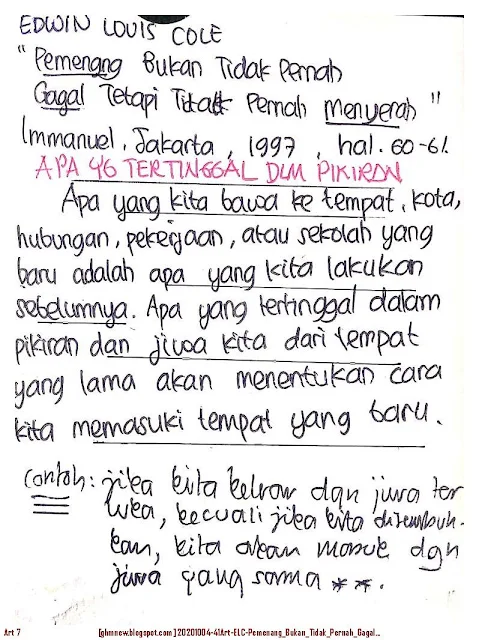 EDWIN LOUIS COLE
"Pemenang Bukan Tidak Pernah
Gagal Tetapi Tidak Pernah Menyerah"
Immanuel, Jakarta, 1997, hal. 60-61.
APA YG TERTINGGAL DLM PIKIRAN
Apa yang kita bawa ke tempat, kota,
hubungan, pekerjaan, atau sekolah yang
baru adalah apa yang kita lakukan
sebelumnya. Apa yang tertinggal dalam
pikiran dan jiwa kita dari tempat
yang lama akan menentukan cara
kita memasuki tempat yang baru.
Contoh: jika kita keluar dgn jiwa ter
luka, kecuali jika kita disembuh-
kan, kita akan masuk dgn
jiwa yang sama **.
Art 7 [ghmnew.blogspot.com] 20201004-41Art-ELC-Pemenang_Bukan_Tidak_Pernah_Gagal...